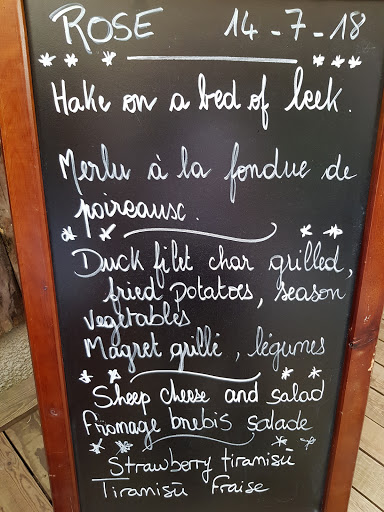 ROSE 14-7-18
Hake on a bed of leek.
Merlu à la fondue de
poireaux.
Duck filet char grilled,
fried potatoes, season
vegetables
Magret grillé, légumes
Sheep cheese and salad
Fromage brebis salade
Strawberry tiramisū
Tiramisū Fraise